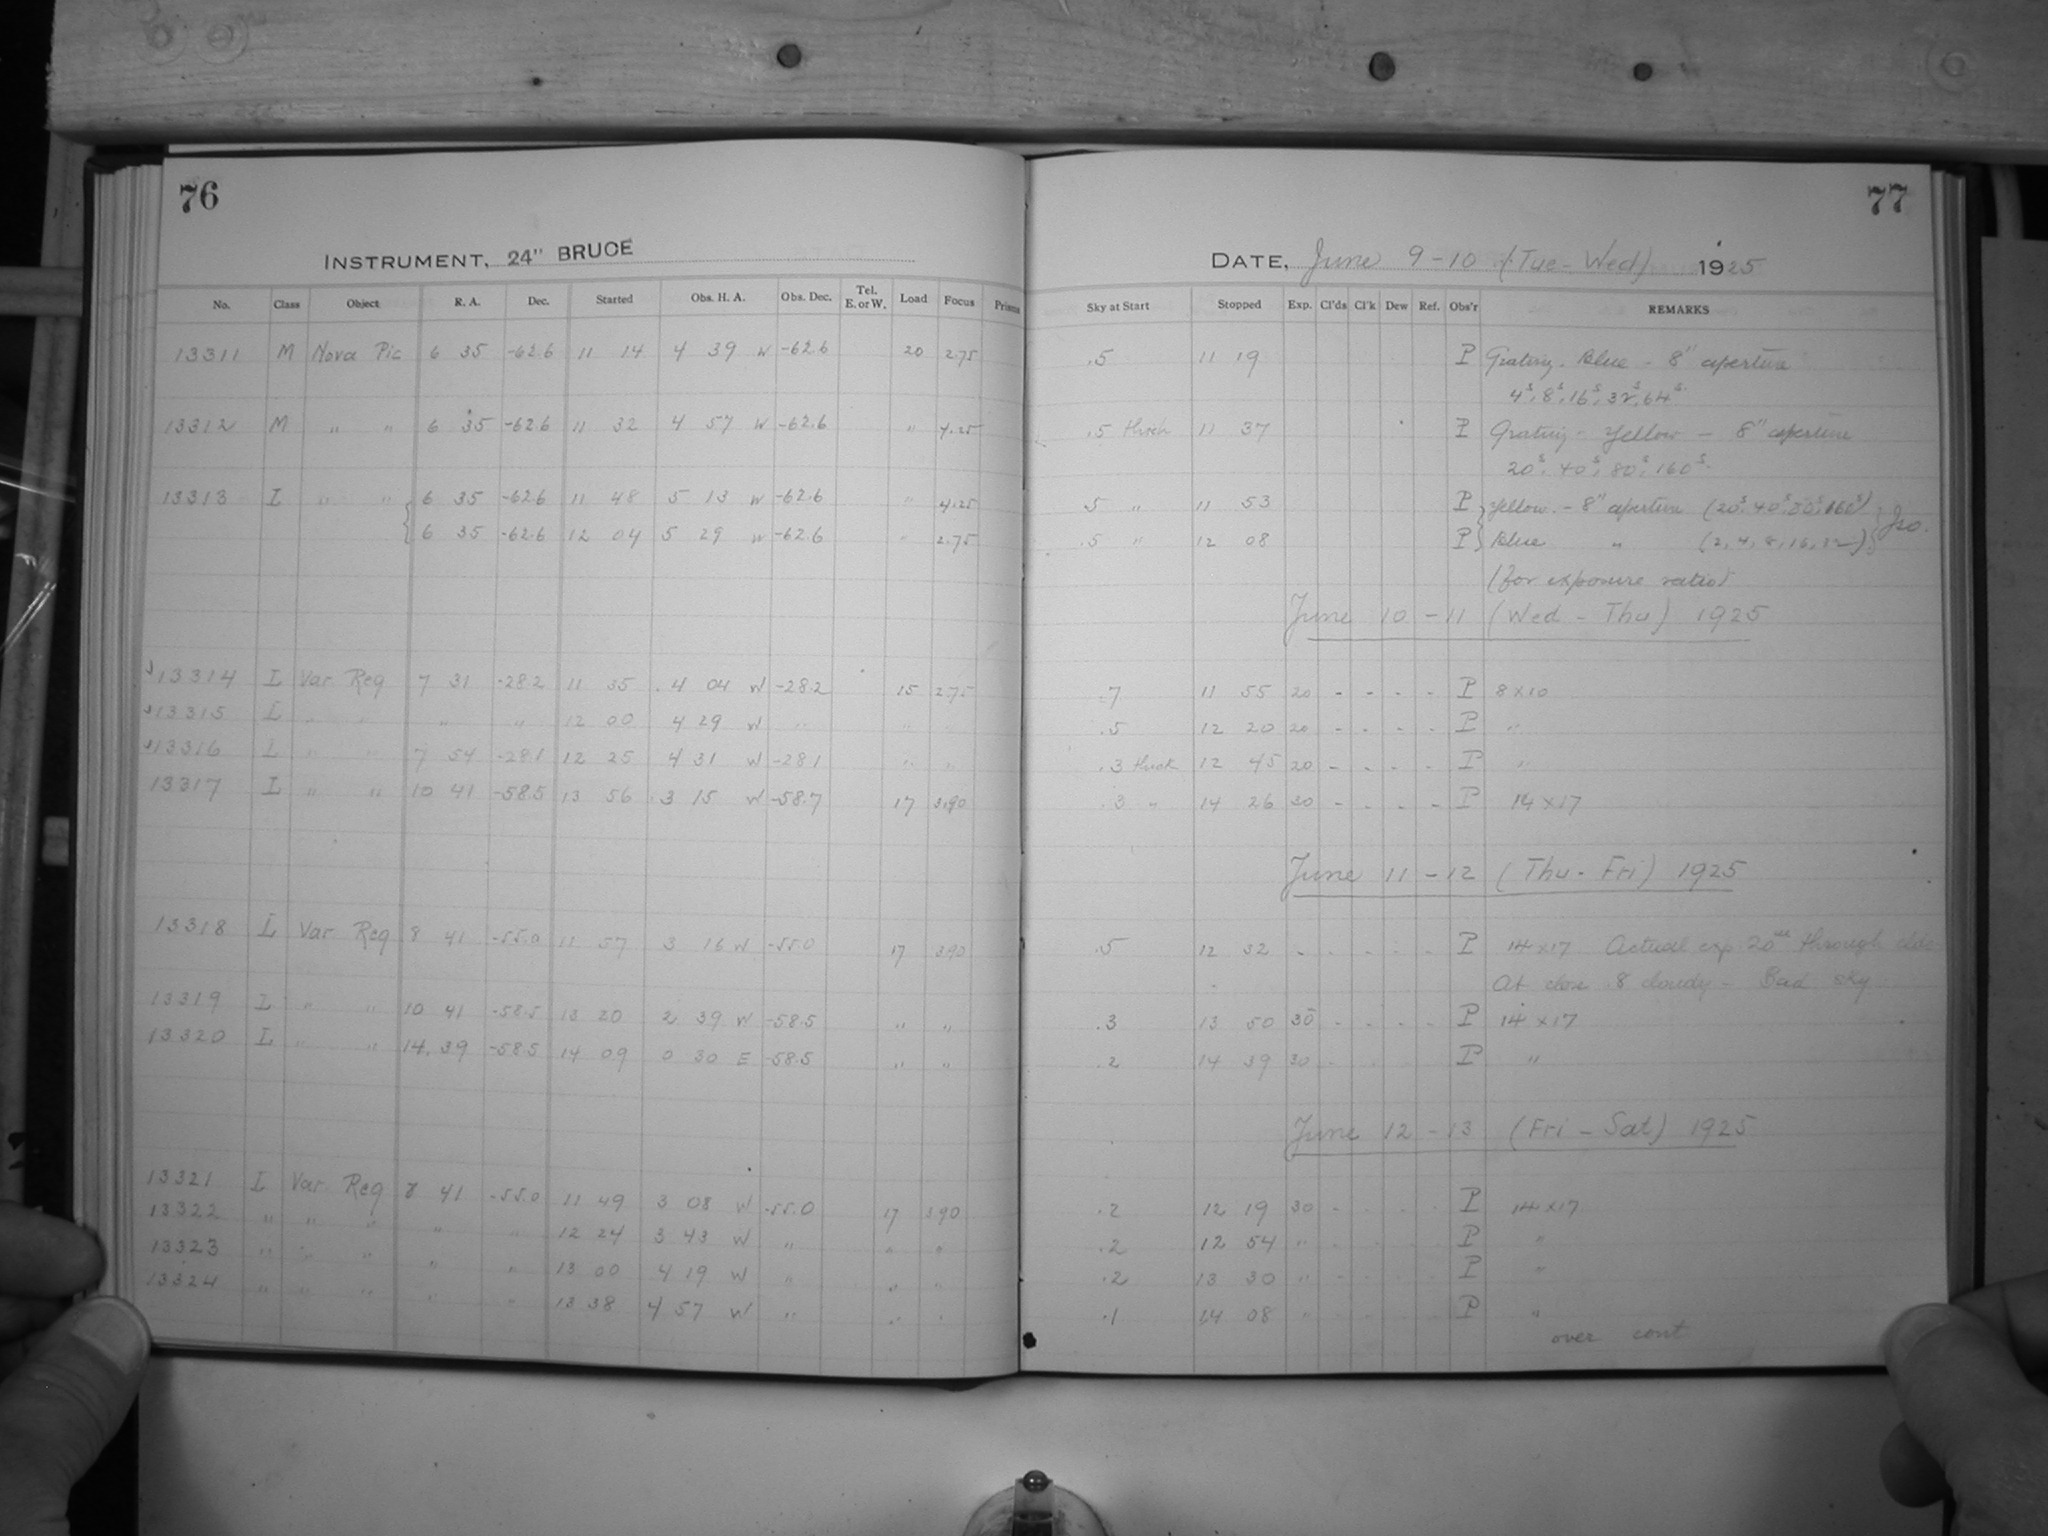 76
INSTRUMENT, 24" BRUCE
No. Class Object R. A. Dec. Started Obs. H. A. Obs. Dec. Tel. E. or W. Load Focus Prisms
13311 M Nova Pic 6 35 -62.6 11 14 4 39 W -62.6 20 2.75
13312 M " " 6 35 -62.6 11 32 4 57 W -62.6 " 4.25
13313 I " " 6 35 -62.6 11 48 5 13 W -62.6 " 4.25
6 35 -62.6 12 04 5 29 W -62.6 " 2.75
13314 L Var Reg 7 31 -28.2 11 35 4 04 W -28.2 15 2.75
13315 L " " " " 12 00 4 29 W " " "
13316 L " " 7 54 -28.1 12 25 4 31 W -28.1 " "
13317 L " " 10 41 -58.5 13 56 3 15 W -58.7 17 3.90
13318 L Var Reg 8 41 -55.0 11 57 3 16 W -55.0 17 3.90
13319 L " " 10 41 -58.5 13 20 2 39 W -58.5 " "
13320 L " " 14 39 -58.5 14 09 0 30 E -58.5 " "
13321 L Var Reg 8 41 -55.0 11 49 3 08 W -55.0 17 3.90
13322 " " " " " 12 24 3 43 W " " "
13323 " " " " " 13 00 4 19 W " " "
13324 " " " " " 13 38 4 57 W " " "
77
DATE, June 9-10 (Tue-Wed) 1925
Sky at Start Stopped Exp. Cl'ds Cl'k Dew Ref. Obs'r REMARKS
.5 11 19 P Grating. Blue - 8" aperture
4s, 8s, 16s, 32s, 64s.
.5 thick 11 37 P Grating - Yellow - 8" aperture
20s, 40s, 80s, 160s.
.5 " 11 53 P Yellow. - 8" aperture (20s, 40s, 80s, 160s) Iso.
.5 " 12 08 P Blue " (2, 4, 8, 16, 32)
(for exposure ratio)
June 10-11 (Wed-Thu) 1925
.7 11 55 20 - - - - P 8x10
.5 12 20 20 - - - - P "
.3 thick 12 45 20 - - - - P "
.3 " 14 26 30 - - - - P 14x17
June 11-12 (Thu-Fri) 1925
.5 12 32 - - - - - P 14x17 Actual exp. 20 through clds
At close .8 cloudy - Bad sky
.3 13 50 30 - - - - P 14x17
.2 14 39 30 - - - - P "
June 12-13 (Fri-Sat) 1925
.2 12 19 30 - - - - P 14x17
.2 12 54 " - - - - P "
.2 13 30 " - - - - P "
.1 14 08 " - - - - P "
over cont